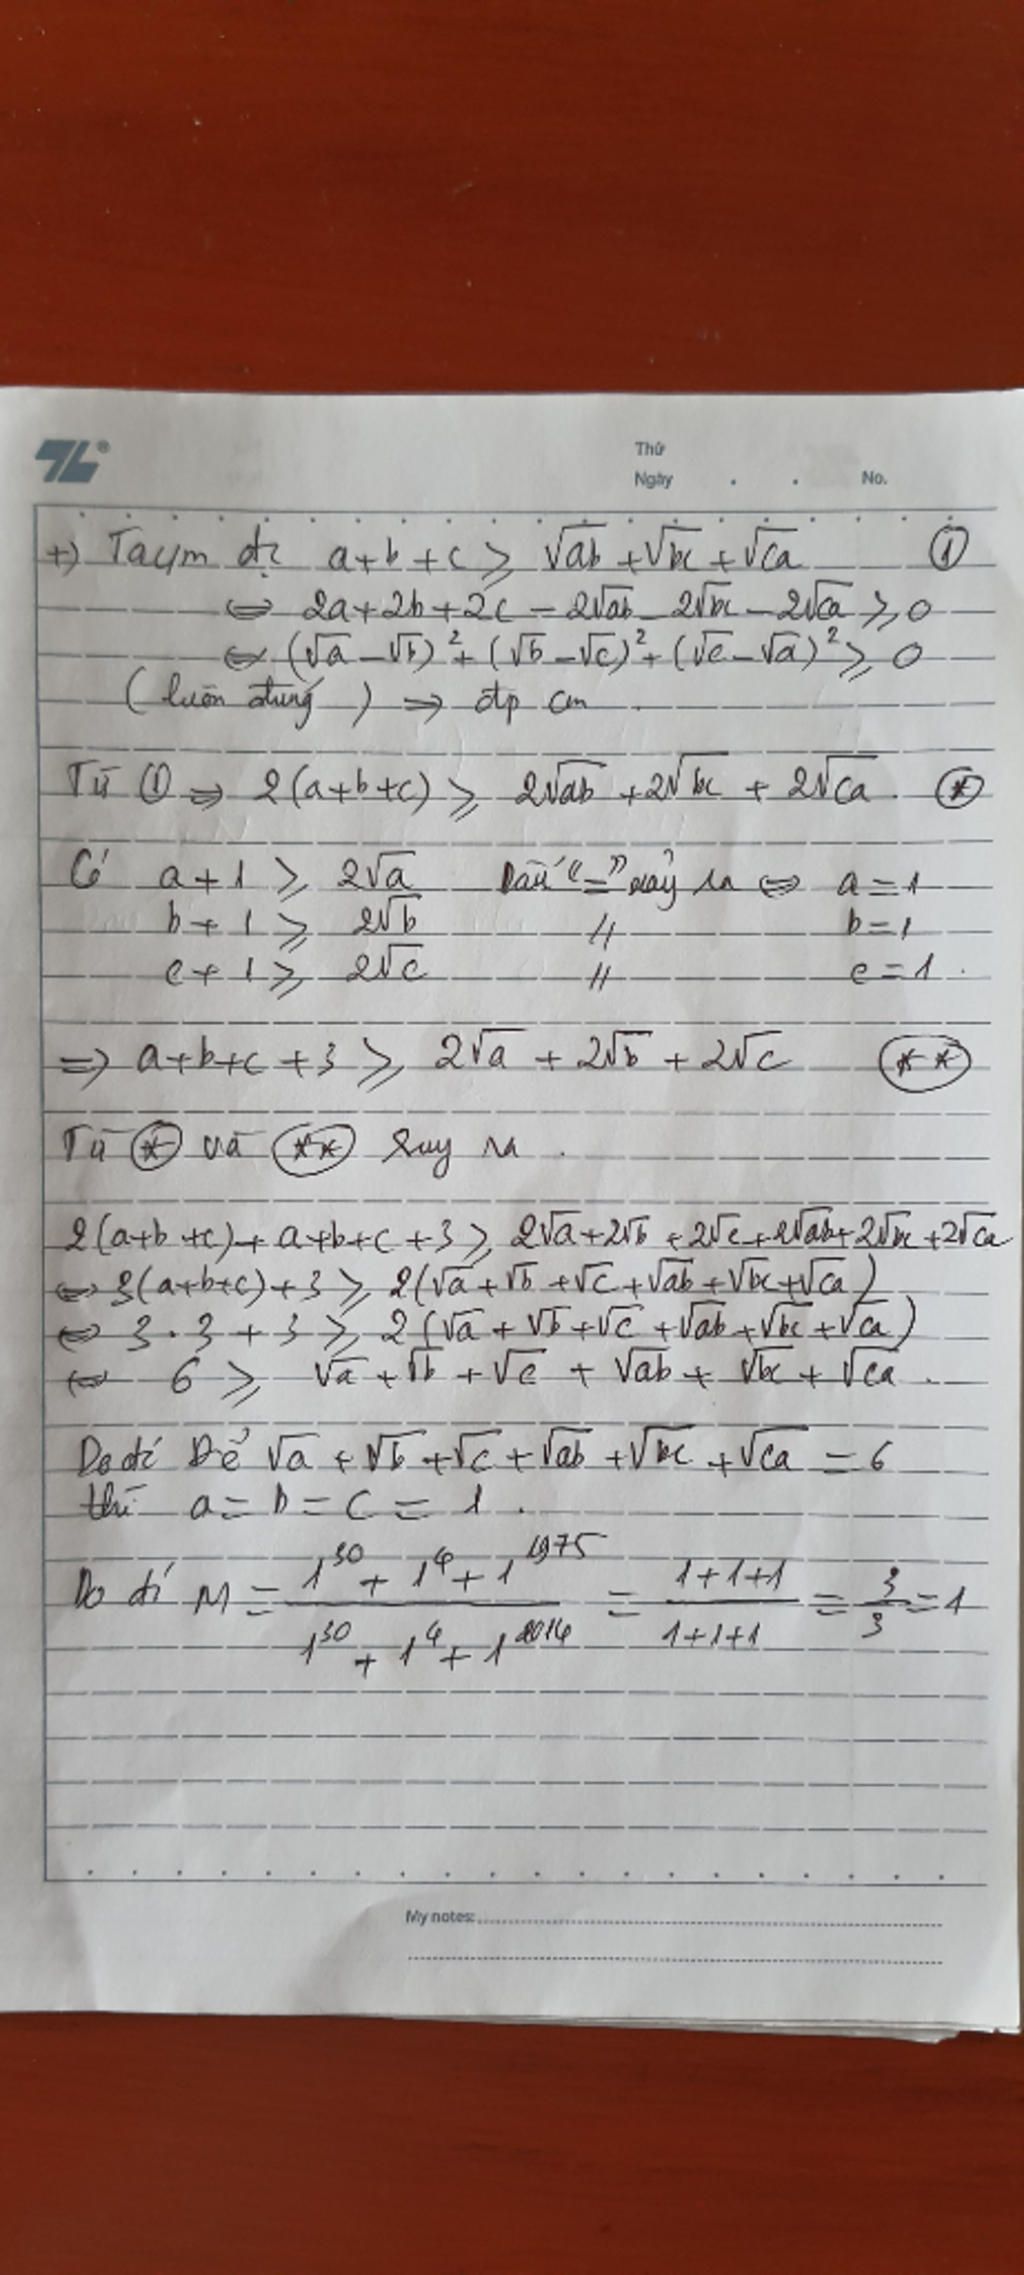 TL®
Thứ
Ngày . . No.
+) Ta c/m đc a+b+c ⩾ √ab + √bc + √ca ①
⇔ 2a+2b+2c - 2√ab - 2√bc - 2√ca ⩾ 0
⇔ (√a - √b)² + (√b - √c)² + (√c - √a)² ⩾ 0
(luôn đúng) ⇒ đpcm.
Từ ① ⇒ 2(a+b+c) ⩾ 2√ab + 2√bc + 2√ca. (*)
Có a+1 ⩾ 2√a Dấu "=" xảy ra ⇔ a=1
b+1 ⩾ 2√b // b=1
c+1 ⩾ 2√c // c=1.
⇒ a+b+c+3 ⩾ 2√a + 2√b + 2√c (**)
Từ (*) và (**) suy ra.
2(a+b+c)+a+b+c+3 ⩾ 2√a+2√b+2√c+2√ab+2√bc+2√ca
⇔ 3(a+b+c)+3 ⩾ 2(√a+√b+√c+√ab+√bc+√ca)
⇔ 3.3+3 ⩾ 2(√a+√b+√c+√ab+√bc+√ca)
⇔ 6 ⩾ √a+√b+√c+√ab+√bc+√ca.
Do đó Để √a+√b+√c+√ab+√bc+√ca = 6
thì a=b=c=1.
Do đó M = (1³⁰+1⁴+1¹⁹⁷⁵)/(1³⁰+1⁴+1²⁰¹⁴) = (1+1+1)/(1+1+1) = 3/3 = 1
My notes: